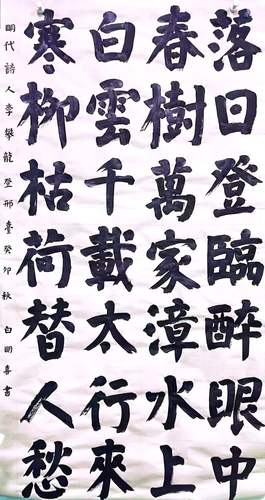 落日登臨醉眼中
春樹萬家漳水上
白雲千載太行來
寒柳枯荷替人愁
明代詩人李攀龍登邢臺癸卯秋白明喜書